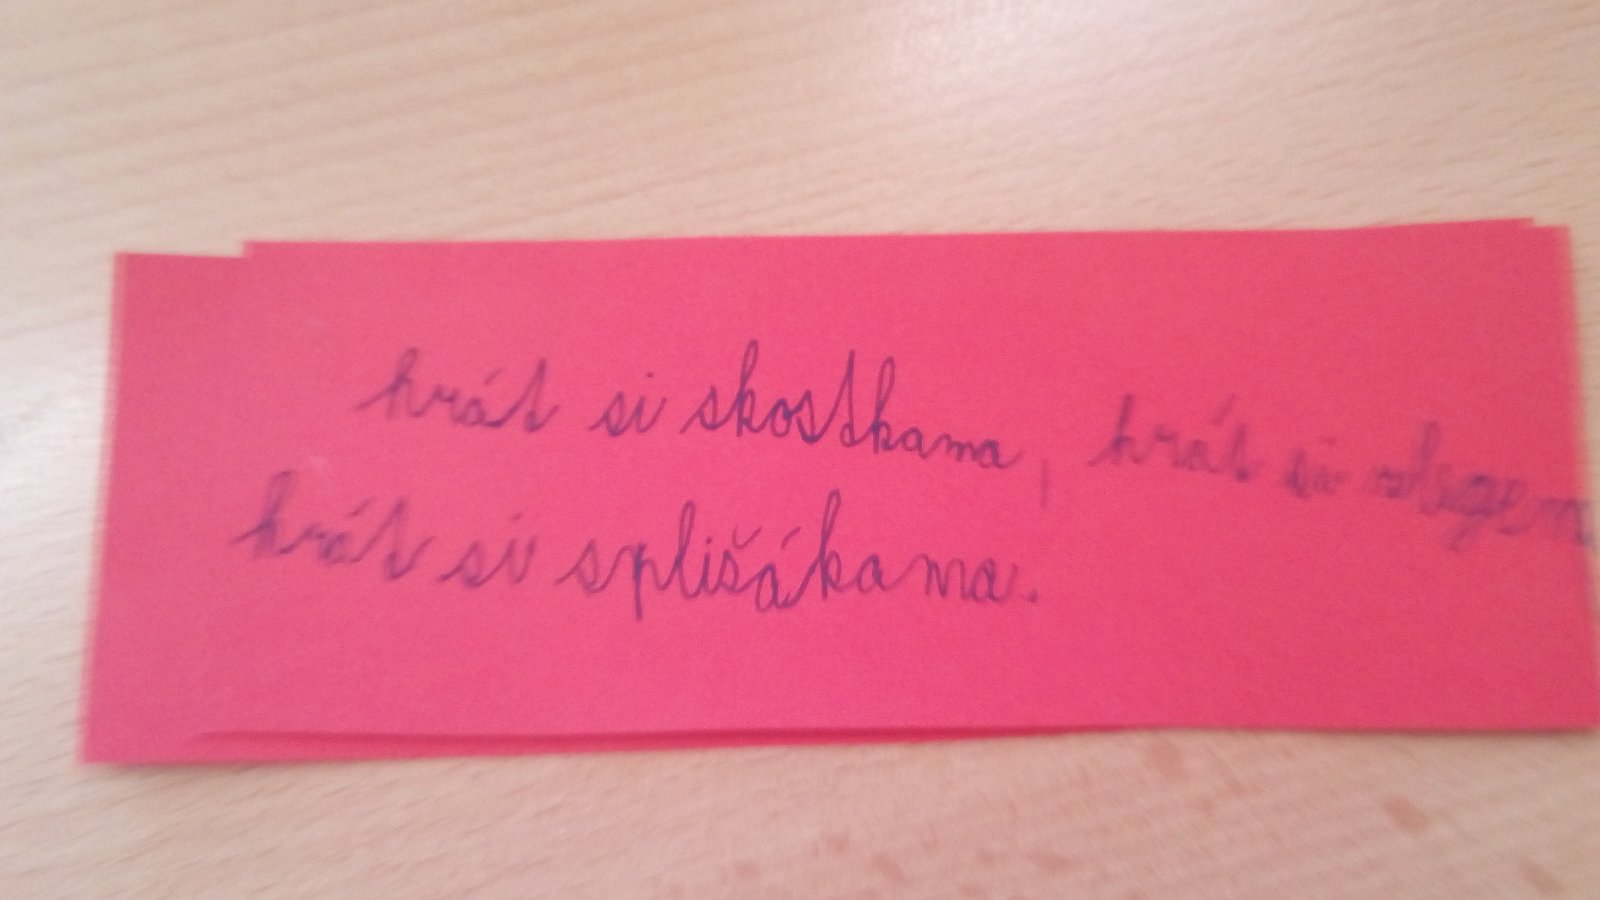 hrát si skostkama, hrát si slegem
hrát si splišákama.